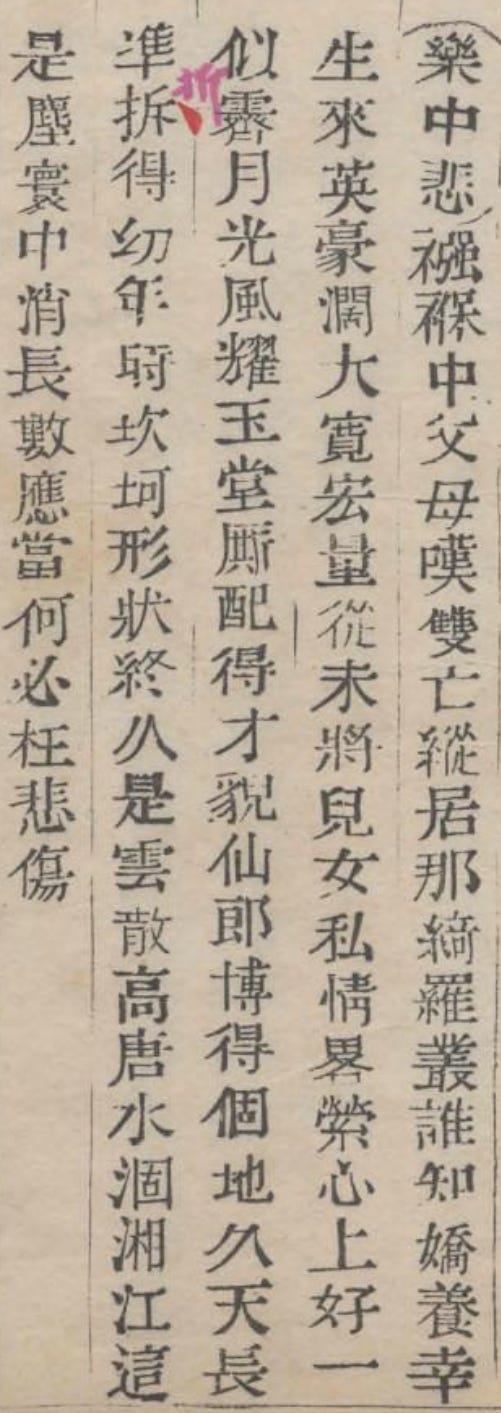 樂中悲襁褓中父母嘆雙亡縱居那綺羅叢誰知嬌養幸
生來英豪濶大寬宏量從未將兒女私情畧縈心上好一
似霽月光風耀玉堂厮配得才貌仙郎博得個地久天長
準拆得幼年時坎坷形狀終久是雲散高唐水涸湘江這
是塵寰中消長數應當何必枉悲傷
折